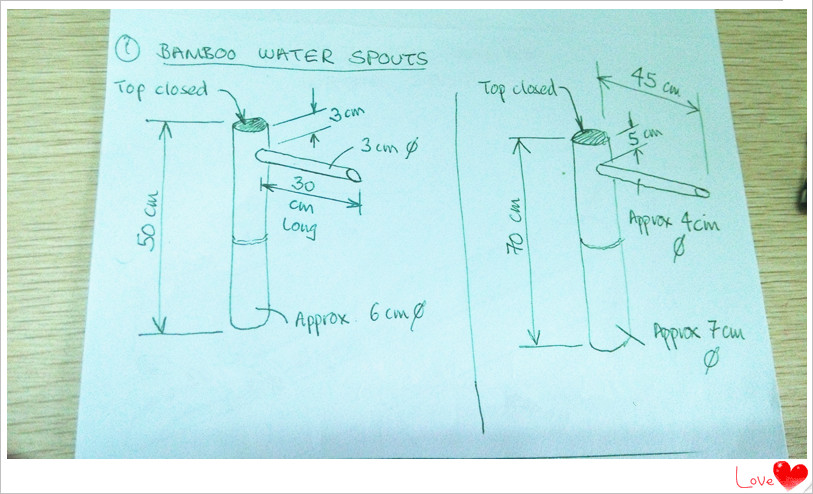 ① BAMBOO WATER SPOUTS
Top closed
3 cm
3 cm Ø
30
cm
Long
50 cm
Approx. 6 cm Ø
Top closed
45 cm
5 cm
70 cm
Approx 4 cm
Ø
Approx 7 cm
Ø
Love